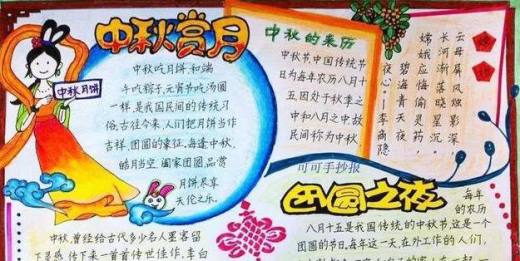 中秋赏月
中秋月饼
中秋吃月饼,和端
午吃粽子,元宵节吃汤圆
一样,是我国民间的传统习
俗。古往今来,人们把月饼当作
吉祥、团圆的象征,每逢中秋,
皓月当空,阖家团圆,品尝
月饼尽享
天伦之乐。
中秋的来历
中秋节,中国传统节
日为每年农历八月十
五因处于秋季之
中和八月之中故
民间称为中秋,
嫦娥
云母屏风烛影深
长河渐落晓星沉
嫦娥应悔偷灵药
碧海青天夜
夜心。—李商隐
可可手抄报
团圆之夜
每年
的农历
八月十五是我国传统的中秋节,这是一个
团圆的节日,每年这一天,在外工作的人们,
中秋,曾经给古代多少名人墨客留
下灵感,传下来一首首传世佳作,李白